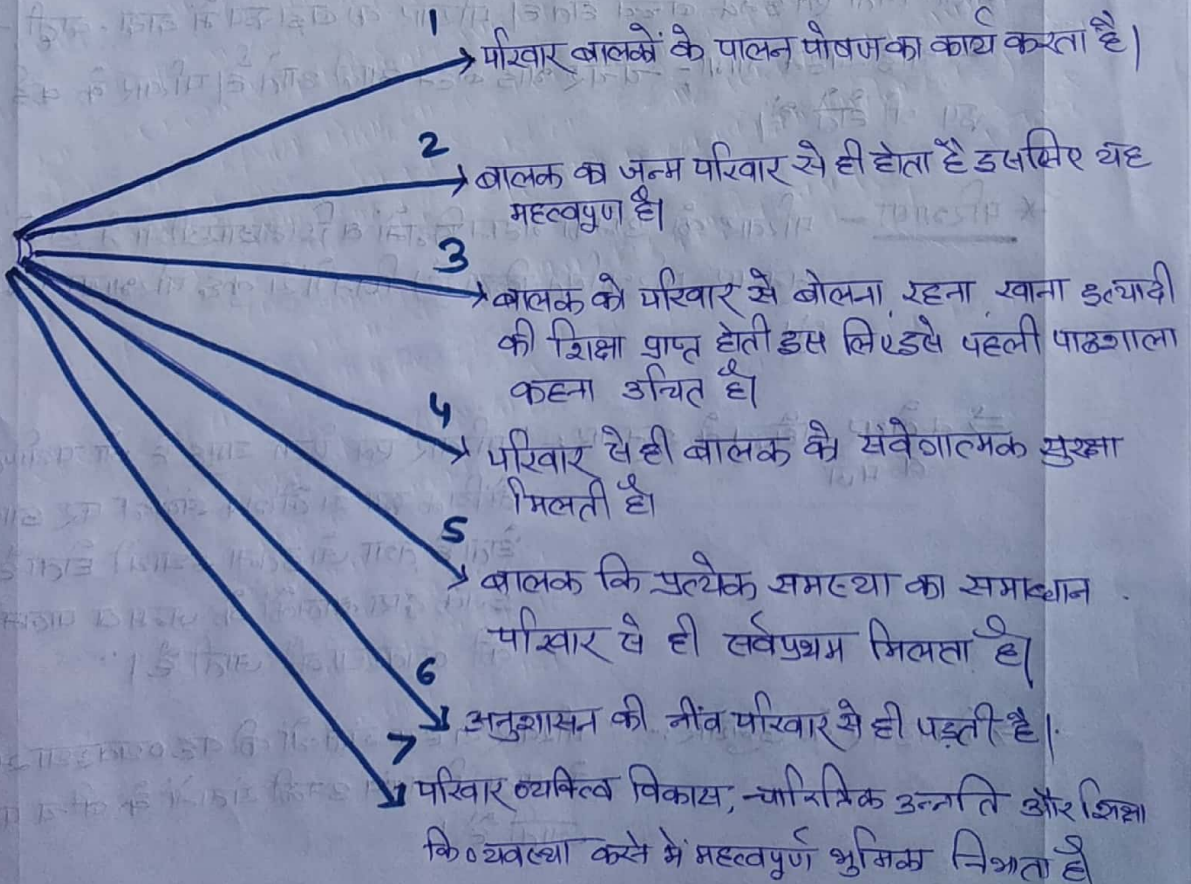 1
परिवार बालकों के पालन पोषण का कार्य करता है।
2
बालक का जन्म परिवार से ही होता है इसलिए यह
महत्वपूण है।
3
बालक को परिवार से बोलना रहना खाना इत्यादी
की शिक्षा प्राप्त होती इस लिए इसे पहली पाठशाला
कहना उचित है।
4
परिवार से ही बालक को संवेगात्मक सुरक्षा
मिलती है।
5
बालक कि प्रत्येक समस्या का समाधान
परिवार से ही सर्वप्रथम मिलता है।
6
अनुशासन की नींव परिवार से ही पड़ती है।
7
परिवार व्यक्तित्व विकास, चारित्रिक उन्नति और शिक्षा
कि व्यवस्था करने में महत्वपूर्ण भुमिका निभाता है